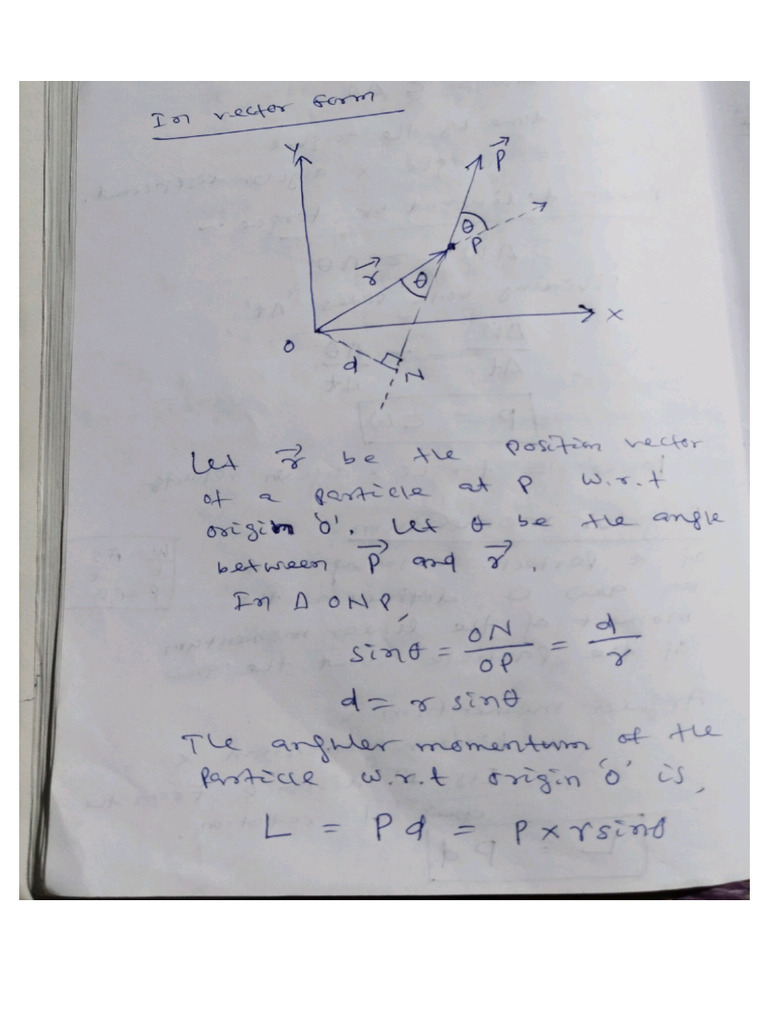 In vector form
Y
P⃗
θ
P
r⃗
θ
X
O
d
N
Let r⃗ be the position vector
of a particle at P w.r.t
origin 'o'. Let θ be the angle
between P⃗ and r⃗.
In Δ ONP,
sinθ = ON/OP = d/r
d = r sinθ
The anguler momentum of the
Particle w.r.t origin 'o' is,
L = Pd = P × r sinθ